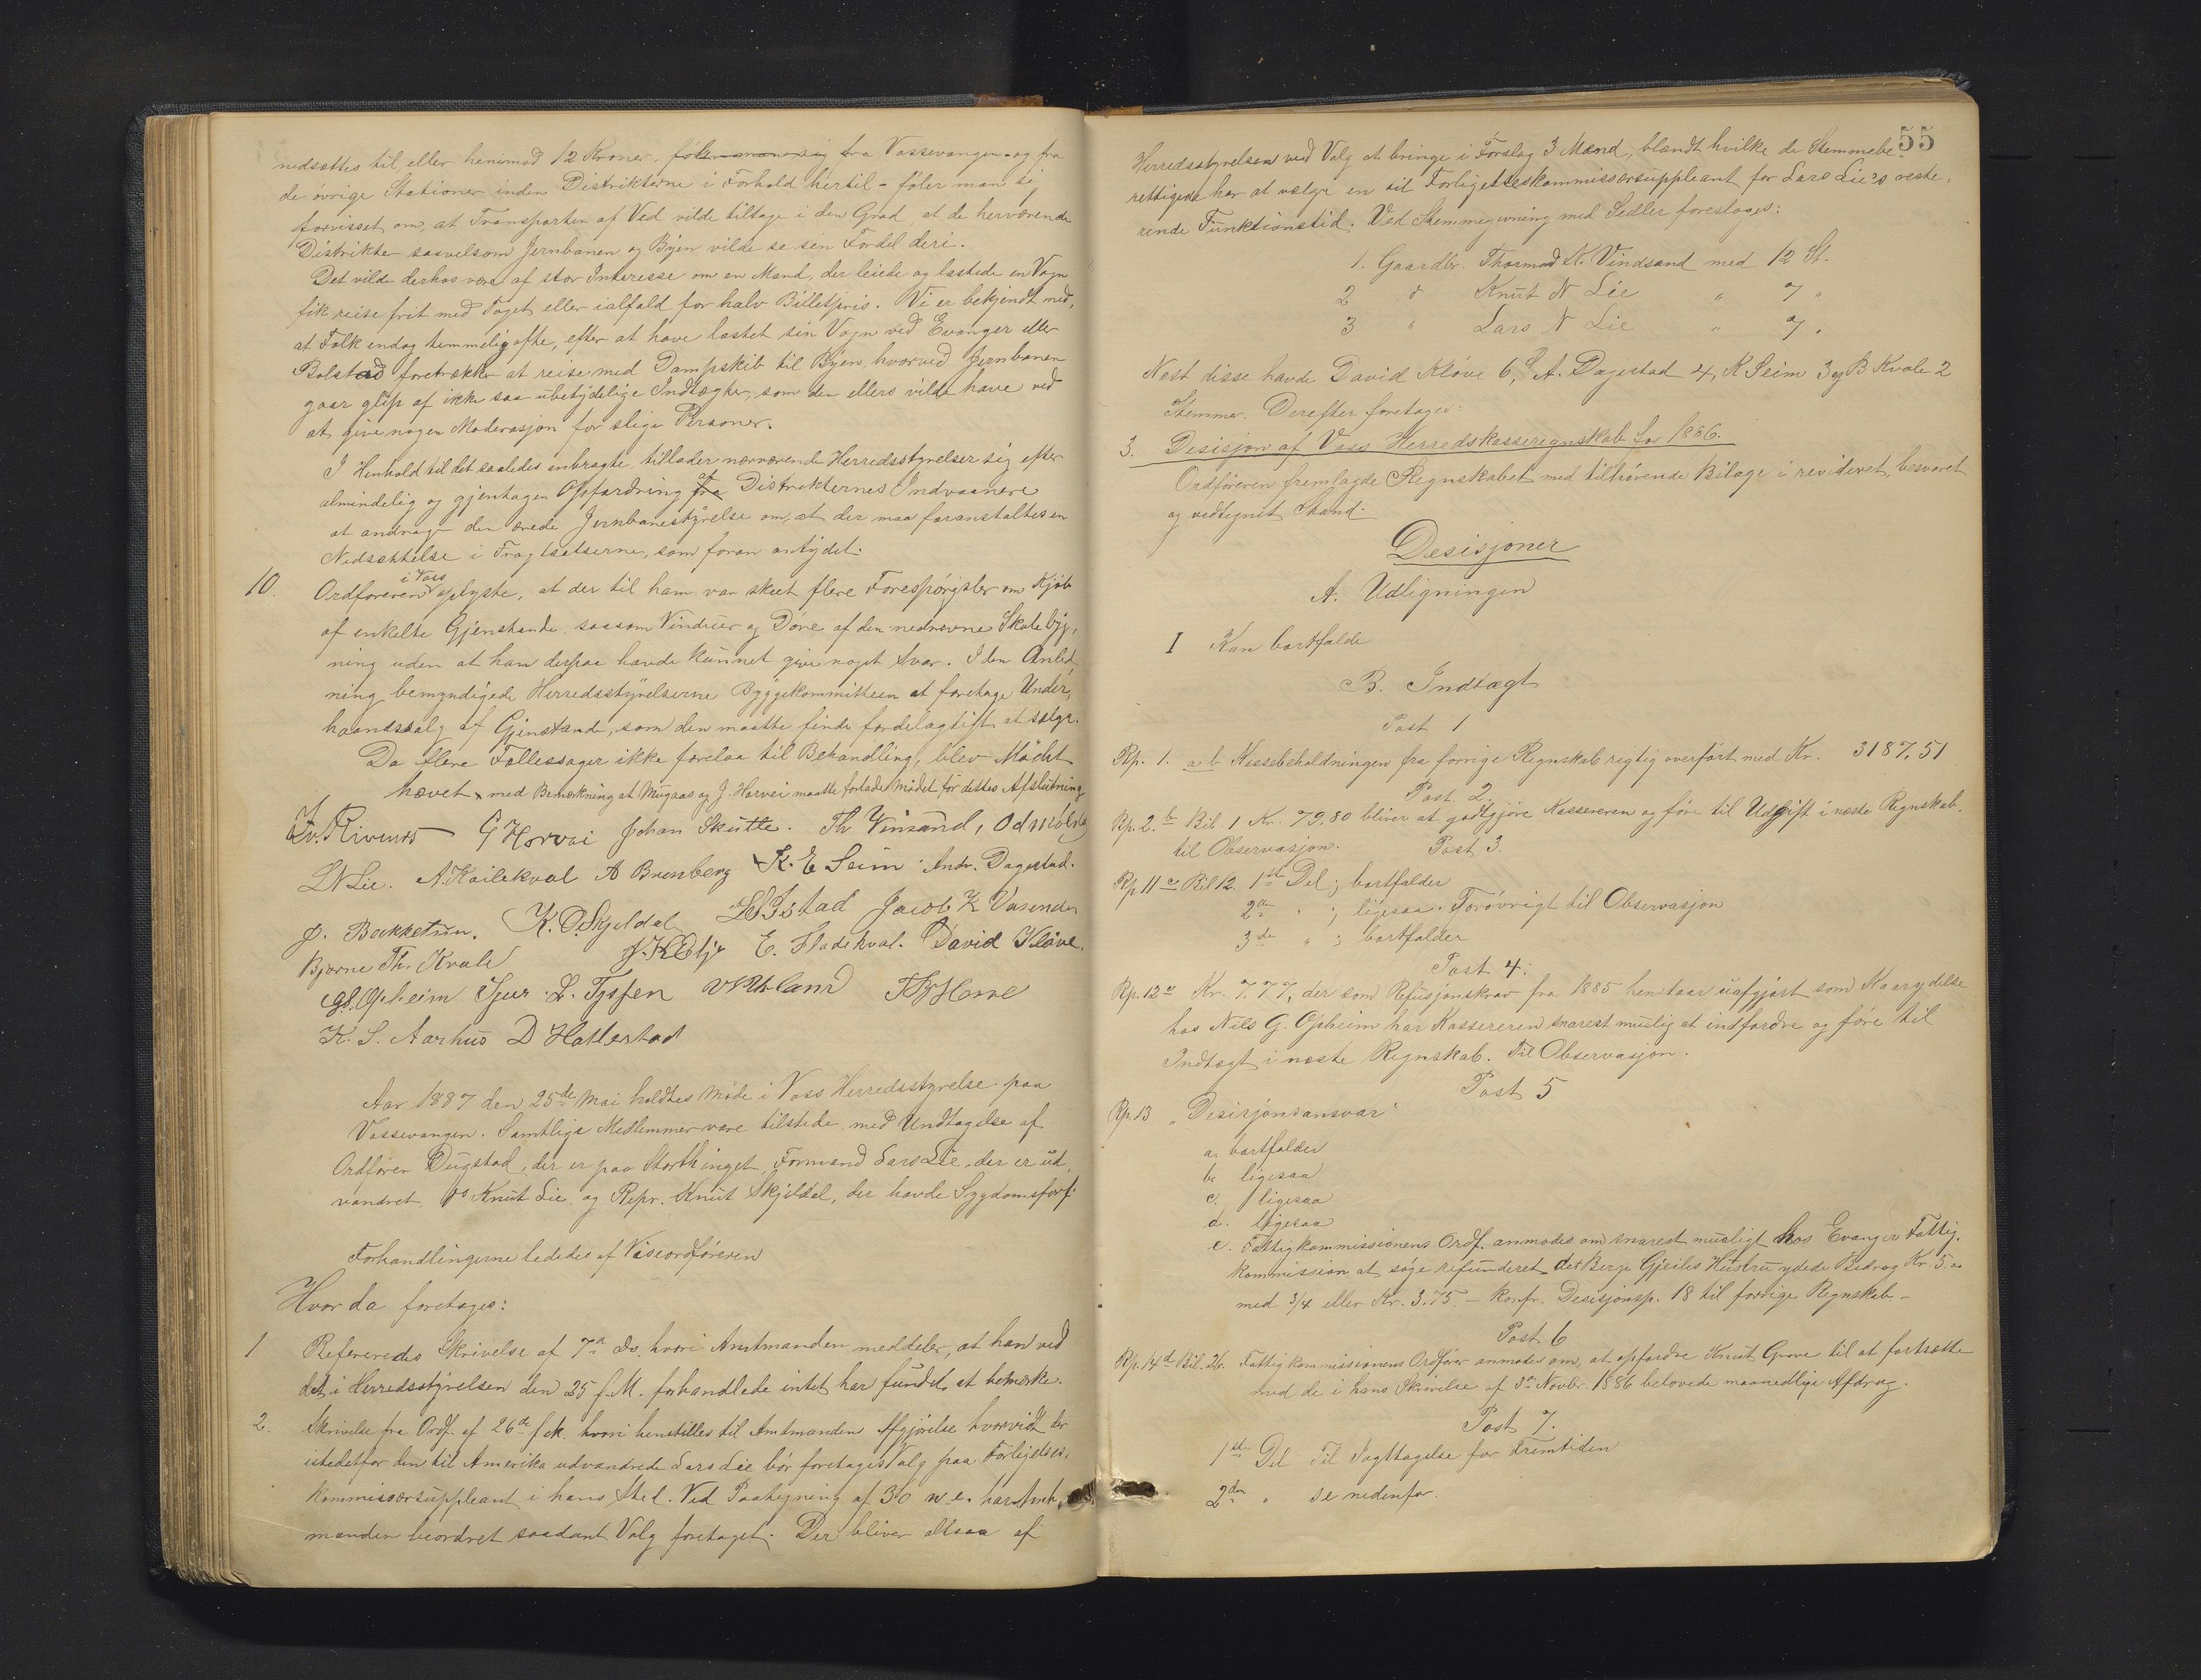 nedsættes til, eller henimod 12 Kroner. føler man sig fra Vossevangen og fra
de øvrige Stationer inden Distrikterne i Forhold hertil - føler man sig
forvisset om, at Transporten af Ved vilde tiltage i den Grad at de herværende
Distrikter saavelsom Jernbanen og Byen vilde se sin Fordel deri.
Det vilde derhos være af stor Interesse om en Mand, der leiede og lastede en Vogn
fik reise frit med Toget eller ialfald for halv Billetpris. Vi er bekjendt med,
at Folk endog temmelig ofte, efter at have lastet sin Vogn ved Evanger eller
Bolstad foretrækker at reise med Dampskib til Byen, hvorved Jernbanen
gaar glip af ikke saa ubetydelige Indtægter, som den ellers vilde have ved
at give nogen Moderasjon for slige Personer.
I Henhold til det saaledes anbragte, tillader nærværende Herredsstyrelser sig efter
almindelig og gjentagen Opfordring fra af Distrikternes Indvaanere
at andrage den ærede Jernbanestyrelse om, at der maa foranstaltes en
Nedsættelse i Fragtsatserne, som foran antydet.
10. Ordføreren i Voss oplyste, at der til ham var skeet flere Forespørgsler om Kjøb
af enkelte Gjenstande saasom Vinduer og Døre af den nedrevne Skolebyg,
ning uden at han derpaa havde kunnet give noget Svar. I den Anled,
ning bemyndigede Herredsstyrelserne Byggekommitteen at foretage Under,
haandssalg af Gjenstande, som den maatte finde fordelagtigt at sælge.
Da flere Fællessager ikke forelaa til Behandling, blev Mødet
hævet med Bemærkning at Mugaas og J. Horvei maatte forlade Mødet før dettes Afslutning
G Horvei Johan Skutle. Th Vinsand, Odmølster
L N Lie. A. Kollekval A Brensberg K. E Seim Andr. Dagestad.
J. Bakketun. K. O. Skjeldal L S Istad Jacob K Vasenden
Bjørne Th. Kvale E. Fladekval. David Kløve.
Opheim Sjur L. Tyssen Horve
K. S. Aarhus D Hallestad
Aar 1887 den 25de Mai holdtes Møde i Voss Herredsstyrelse paa
Vossevangen. Samtlige Medlemmer vare tilstede med Undtagelse af
Ordfører Dugstad, der er paa Storthinget, Formand Lars Lie, der er ud,
vandret, do Knut Lie, og Repr. Knut Skjeldal, der havde Sygdomsforf.
Forhandlingerne lededes af Viseordføreren
Hvor da foretoges:
1 Refereredes Skrivelse af 7de ds. hvori Amtmanden meddeler, at han ved
det i Herredsstyrelsen den 25 f. M. forhandlede intet har fundet at bemærke.
2. Skrivelse fra Ordf. af 26de f. M. hvori henstilles til Amtmandens Afgjørelse hvorvidt der
istedetfor den til Amerika udvandrede Lars Lie bør foretages Valg paa Forligelses,
kommissærsuppleant i hans Sted. Ved Paategning af 30 n. e. har Amt,
manden beordret saadant Valg foretaget. Der bliver altsaa af
55
Herredsstyrelsen ved Valg at bringe i Forslag 3 Mænd, blandt hvilke de Stemmebe,
rettigede har at vælge en til Forligelseskommissærsuppleant for Lars Lie's reste,
rende Funktionstid. Ved Stemmegivning med Sedler foresloges:
1. Gaardbr. Thormod N. Vindsand med 12 St.
2 do Knut N Lie " 7 "
3 " Lars N Lie " 7 "
Næst disse havde David Kløve 6, A. Dagestad 4, K Seim 3 og B Kvale 2
Stemmer. Derefter foretoges:
3. Desisjon af Voss Herredskasseregnskab for 1886.
Ordføreren fremlagde Regnskabet med tilhørende Bilage i revideret, besvaret
og vedtegnet Stand.
Desisjoner
A. Udligningen
I Kan bortfalde
B. Indtægt
Post 1
Rp. 1. a-b Kassebeholdningen fra forrige Regnskab rigtig overført med Kr. 3187,51
Post 2
Rp. 2.b Bil. 1 Kr. 79.80 bliver at godtgjøre Kassereren og føre til Udgift i næste Regnskab.
til Observasjon.
Post 3.
Rp 11 a Bil 12. 1ste Del; bortfalder
2den " ; ligesaa. Forøvrigt til Observasjon
3die " ; bortfalder
Post 4.
Rp. 12 a Kr. 7.77, der som Refusjonskrav fra 1885 henstaar uafgjort som Kaarydelse
hos Nils G. Opheim har Kassereren snarest mulig at indfordre og føre til
Indtægt i næste Regnskab. Til Observasjon.
Post 5
Rp. 13 „Desisjonsansvar"
a. bortfalder
b. ligesaa
c. ligesaa
d. ligesaa
e. Fattigkommissionens Ordf. anmodes om snarest muligt hos Evanger Fattig,
kommission at søge refunderet det Berge Gjeiles Hustru ydede Bidrag Kr. 5.00
med 3/4 eller Kr. 3.75 - konfr. Desisjonsp. 18 til forrige Regnskab -
Post 6
Rp. 14 d Bil. 26. Fattigkommissionens Ordfører anmodes om, at opfordre Knut Grove til at fortsætte
med de i hans Skrivelse af 3die Novbr. 1886 belovede maanedlige Afdrag.
Post 7.
1ste Del Til Iagttagelse for Fremtiden
2den " se nedenfor.